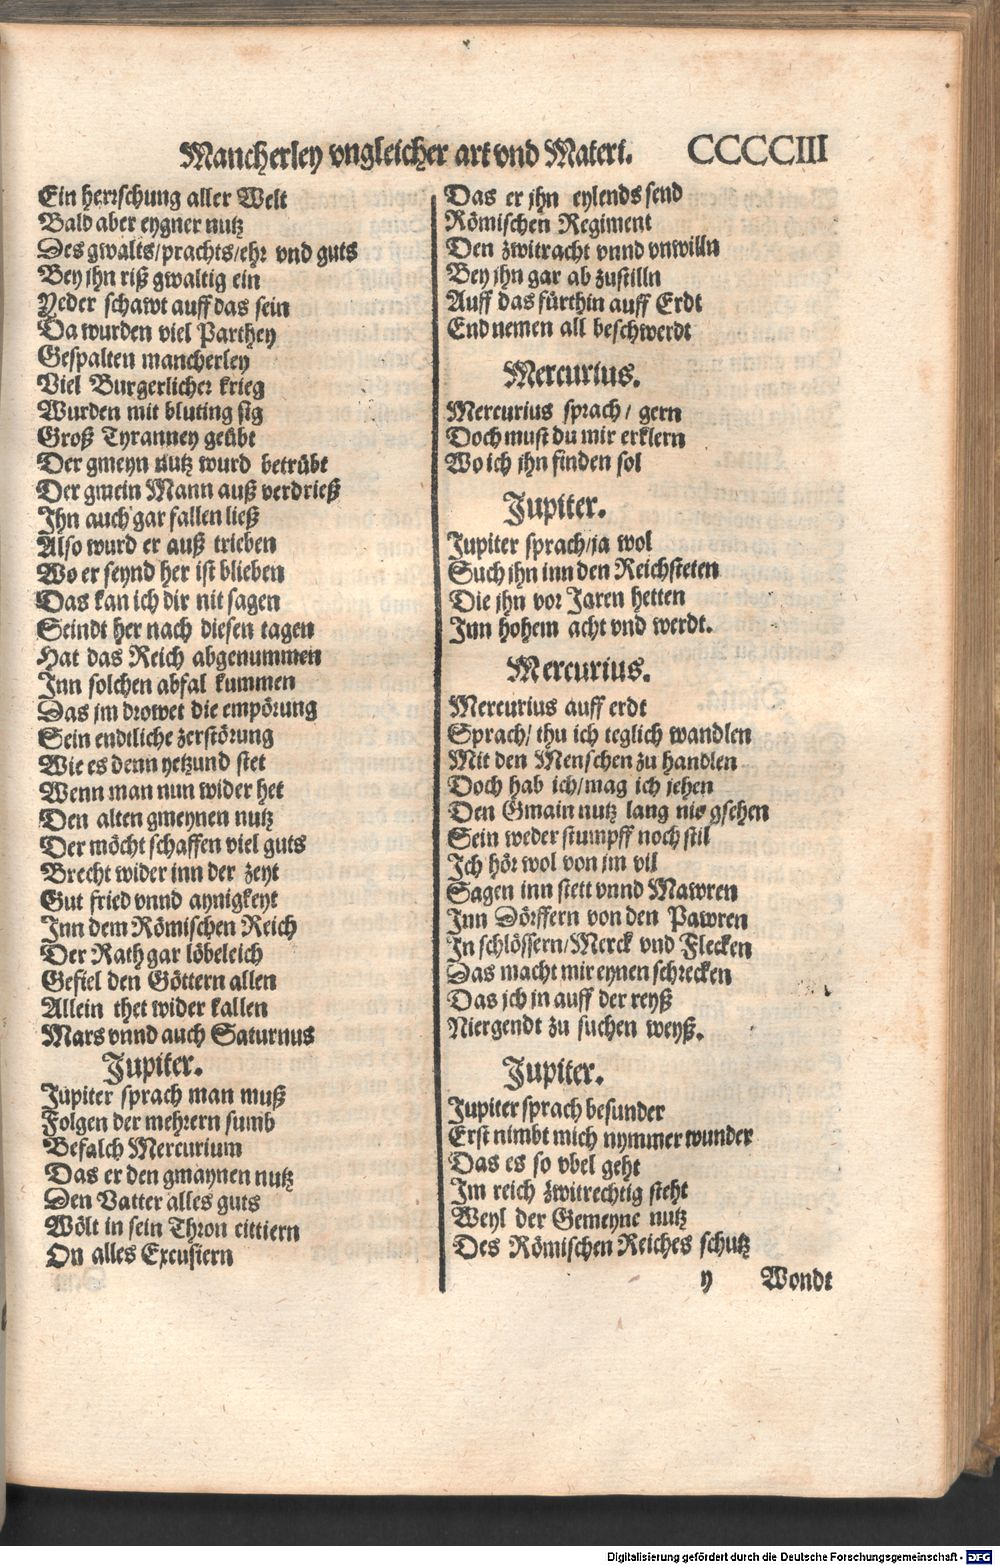 Mancherley vngleicher art vnd Materi. CCCCIII
Ein herrschung aller Welt
Bald aber eygner nutz
Des gwalts/prachts/ehr vnd guts
Bey jhn riß gwaltig ein
Yeder schawt auff das sein
Da wurden viel Parthey
Gespalten mancherley
Viel Burgerlicher krieg
Wurden mit bluting sig
Groß Tyranney geübt
Der gmeyn nutz wurd betrübt
Der gmein Mann auß verdrieß
Jhn auch gar fallen ließ
Also wurd er auß trieben
Wo er seynd her ist blieben
Das kan ich dir nit sagen
Seindt her nach diesen tagen
Hat das Reich abgenummen
Jnn solchen abfal kummen
Das jm drowet die empörung
Sein endtliche zerstörung
Wie es denn yetzund stet
Wenn man nun wider het
Den alten gmeynen nutz
Der möcht schaffen viel guts
Brecht wider inn der zeyt
Gut fried vnnd aynigkeyt
Jnn dem Römischen Reich
Der Rath gar löbeleich
Gefiel den Göttern allen
Allein thet wider kallen
Mars vnnd auch Saturnus
Jupiter.
Jupiter sprach man muß
Folgen der mehrern sumb
Befalch Mercurium
Das er den gmaynen nutz
Den Vatter alles guts
Wölt in sein Thron cittiern
On alles Excusiern
Das er jhn eylends send
Römischen Regiment
Den zwitracht vnnd vnwilln
Bey jhn gar ab zustilln
Auff das fürthin auff Erdt
End nemen all beschwerdt
Mercurius.
Mercurius sprach/ gern
Doch must du mir erklern
Wo ich jhn finden sol
Jupiter.
Jupiter sprach/ja wol
Such jhn inn den Reichsteten
Die jhn vor Jaren hetten
Jnn hohem acht vnd werdt.
Mercurius.
Mercurius auff erdt
Sprach/ thu ich teglich wandlen
Mit den Menschen zu handlen
Doch hab ich/mag ich jehen
Den Gmain nutz lang nie gsehen
Sein weder stumpff noch stil
Jch hör wol von jm vil
Sagen inn stett vnnd Mawren
Jnn Dörffern von den Pawren
Jn schlössern/Merck vnd Flecken
Das macht mir eynen schrecken
Das jch jn auff der reyß
Niergendt zu suchen weyß.
Jupiter.
Jupiter sprach besunder
Erst nimbt mich nymmer wunder
Das es so vbel geht
Jm reich zwitrechtig steht
Weyl der Gemeyne nutz
Des Römischen Reiches schutz
y Wondt
Digitalisierung gefördert durch die Deutsche Forschungsgemeinschaft - DFG